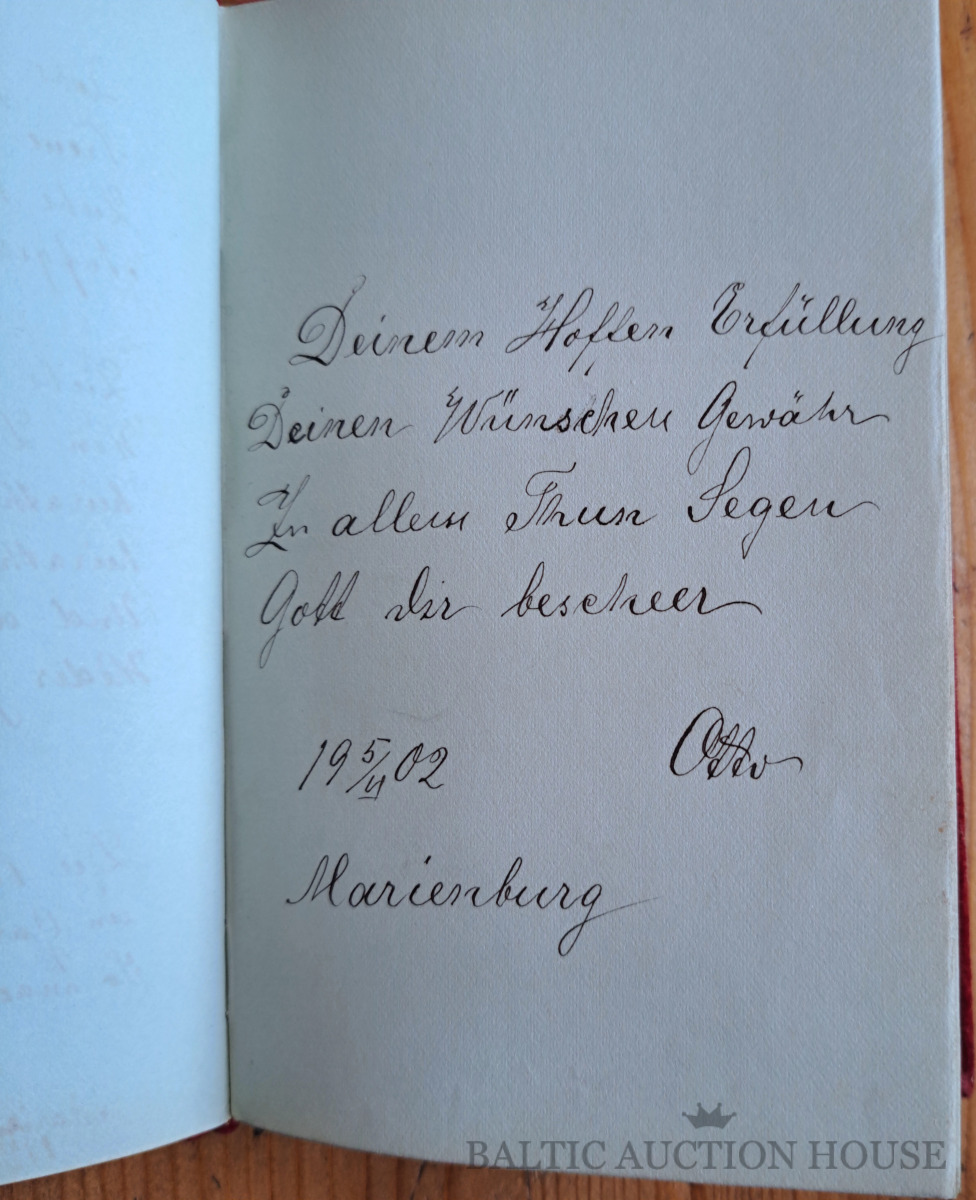 Deinem Hoffen Erfüllung
Deinen Wünschen Gewähr
In allem Thun Segen
Gott dir bescheer
19 5/II 02
Otto
Marienburg
BALTIC AUCTION HOUSE